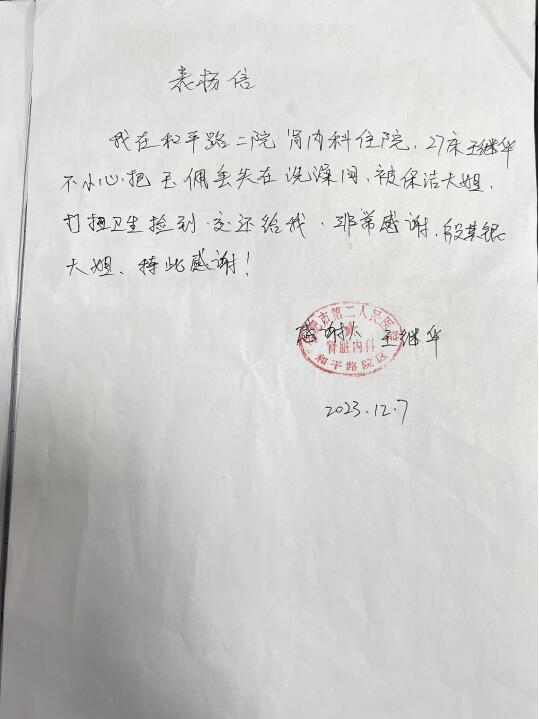 表扬信
我在和平路二院肾内科住院,27床王继华
不小心把玉佩丢失在洗澡间,被保洁大姐,
打扫卫生捡到,交还给我,非常感谢,殷其银
大姐,特此感谢!
感谢人 王继华
市第二人民医院
肾脏内科
和平路院区
2023.12.7